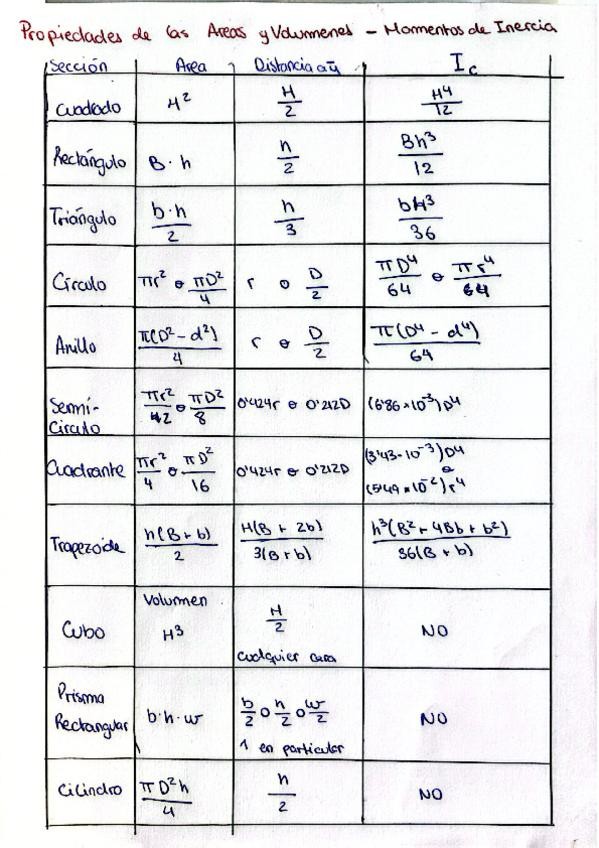 Propiedades de las Areas y Volumenes - Momentos de Inercia
Sección Area Distancia a ȳ I_c
Cuadrado H² H/2 H⁴/12
Rectángulo B·h h/2 Bh³/12
Triángulo b·h/2 h/3 bh³/36
Círculo πr² o πD²/4 r o D/2 πD⁴/64 o πr⁴/64
Anillo π(D²-d²)/4 r o D/2 π(D⁴-d⁴)/64
Semi-
Círculo πr²/2 o πD²/8 0'424r o 0'212D (6'86×10⁻³)D⁴
Cuadrante πr²/4 o πD²/16 0'424r o 0'212D (3'43·10⁻³)D⁴
o
(5'49×10⁻²)r⁴
Trapezoide h(B+b)/2 H(B+2b)/3(B+b) h³(B²+4Bb+b²)/36(B+b)
Volumen
Cubo H³ H/2 NO
cualquier cara
Prisma
Rectangular b·h·w b/2 o h/2 o w/2 NO
1 en particular
Cilindro πD²h/4 h/2 NO